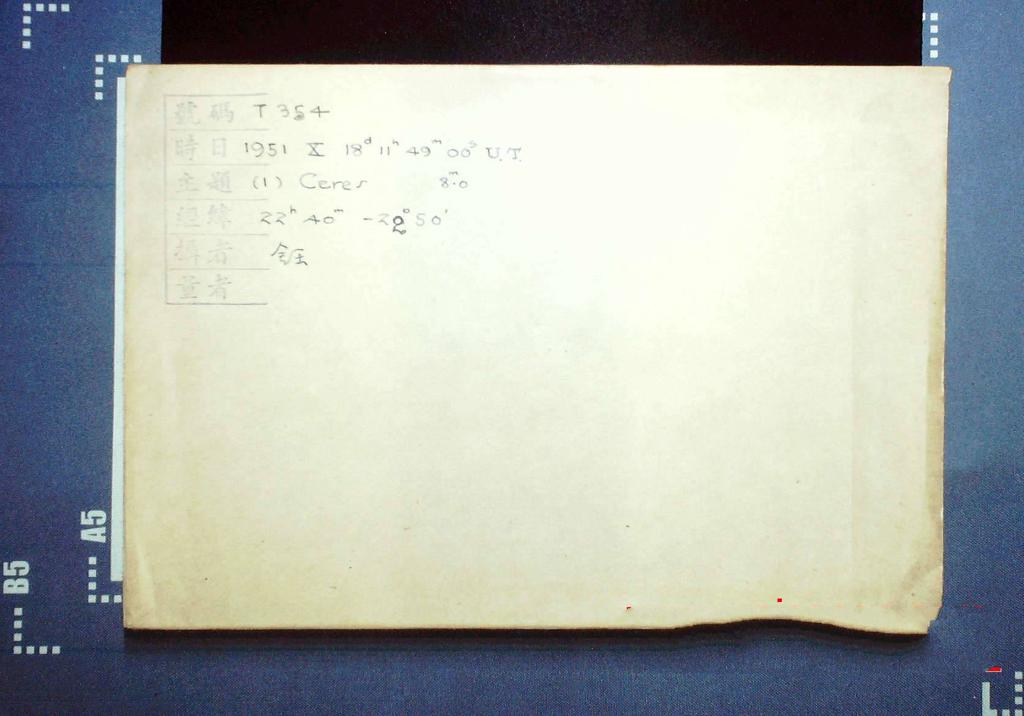 號碼 T 354
時日 1951 X 18ᵈ 11ʰ 49ᵐ 00ˢ U.T.
主題 (1) Ceres 8ᵐ.0
經緯 22ʰ 40ᵐ -22° 50'
攝者
量者
A5
B5